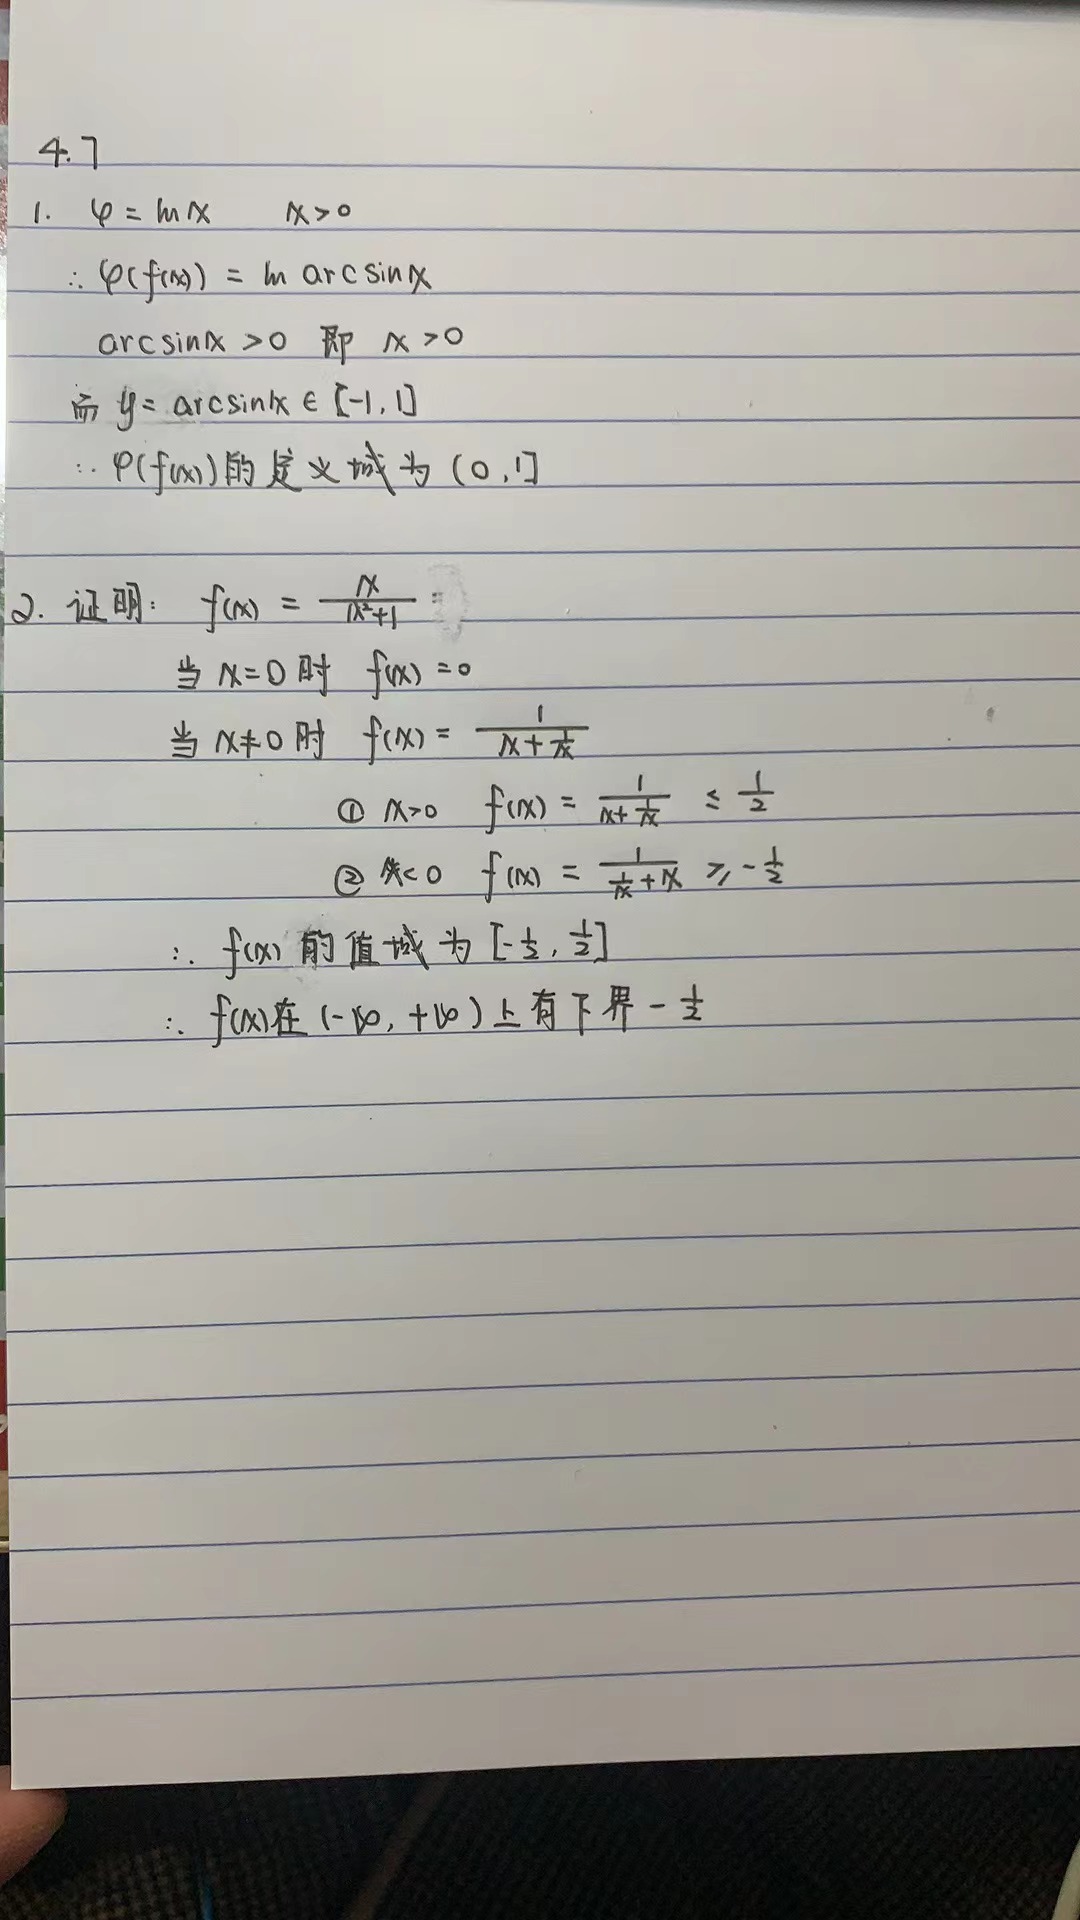 4.7
1. φ = ln x x > 0
∴ φ(f(x)) = ln arcsinx
arcsinx > 0 即 x > 0
而 y = arcsinx ∈ [-1, 1]
∴ φ(f(x))的定义域为 (0, 1]
2. 证明: f(x) = x/(x²+1) =
当 x=0 时 f(x) = 0
当 x≠0 时 f(x) = 1/(x + 1/x)
① x>0 f(x) = 1/(x + 1/x) ≤ 1/2
② x<0 f(x) = 1/(1/x + x) ≥ -1/2
∴ f(x) 的值域为 [-1/2, 1/2]
∴ f(x)在 (-∞, +∞) 上有下界 -1/2